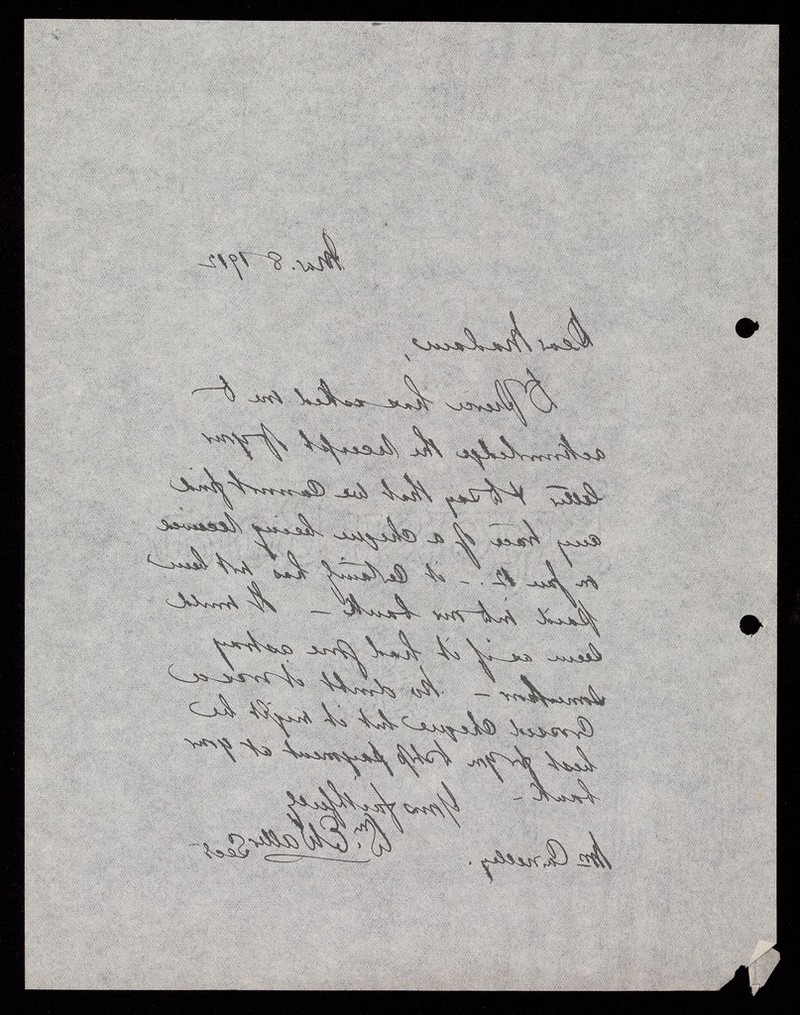 Mar. 8 1912
Dear Madam,
Dr has asked me to
acknowledge the receipt of your
letter & to say that we cannot find
any trace of a cheque being received
on Jan – it certainly has not been
paid into our bank – It would
seem as if it had gone astray
somehow – No doubt it was a
crossed cheque but it might be
best for you to stop payment at your
bank –
Yours faithfully
Wm. E. Wallis Secy